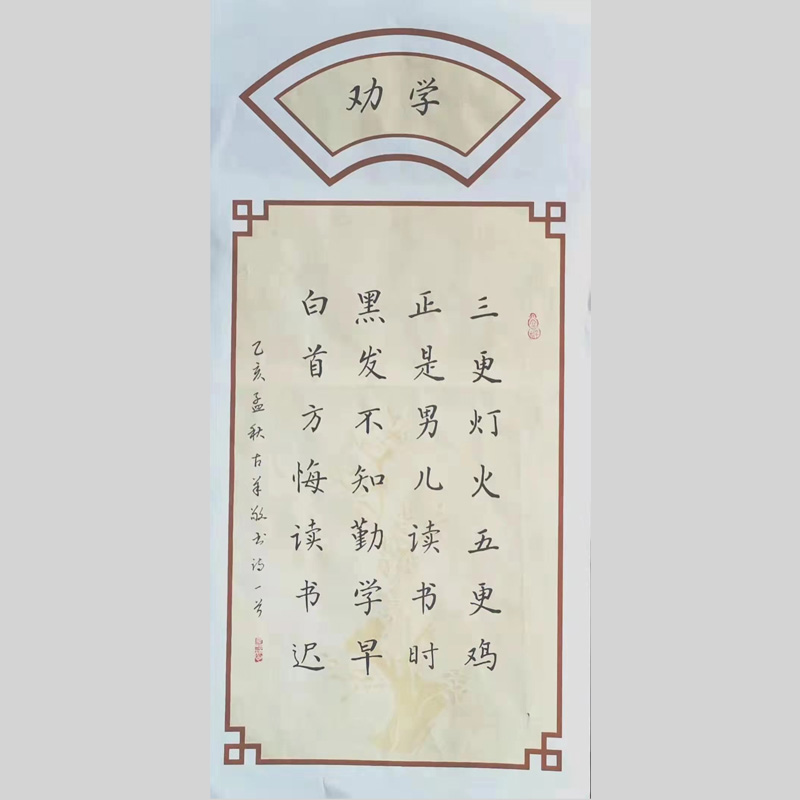 劝学
三更灯火五更鸡
正是男儿读书时
黑发不知勤学早
白首方悔读书迟
乙亥孟秋古羊敬书诗一首